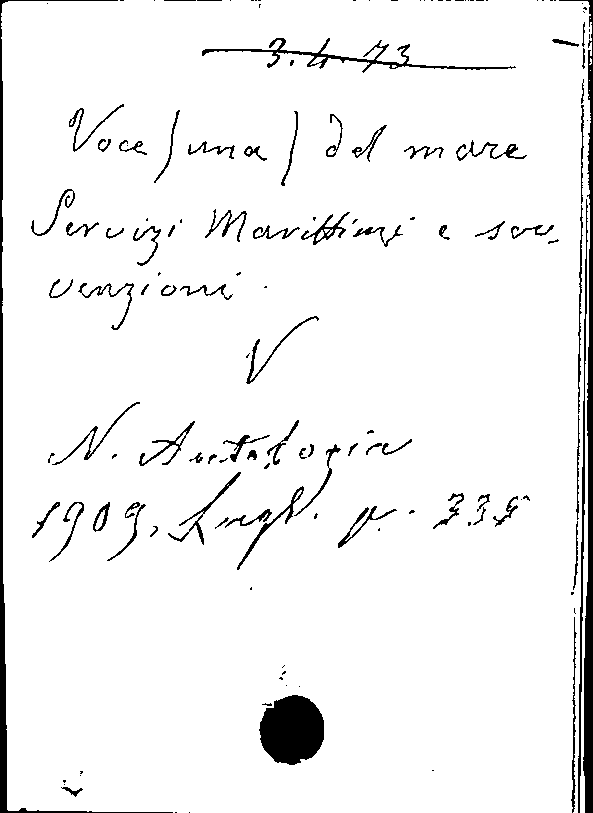 3.4.73
Voce (una) del mare
Servizi Marittimi e sov-
venzioni.
V
N. Antologia
1909, Lugl. p. 335